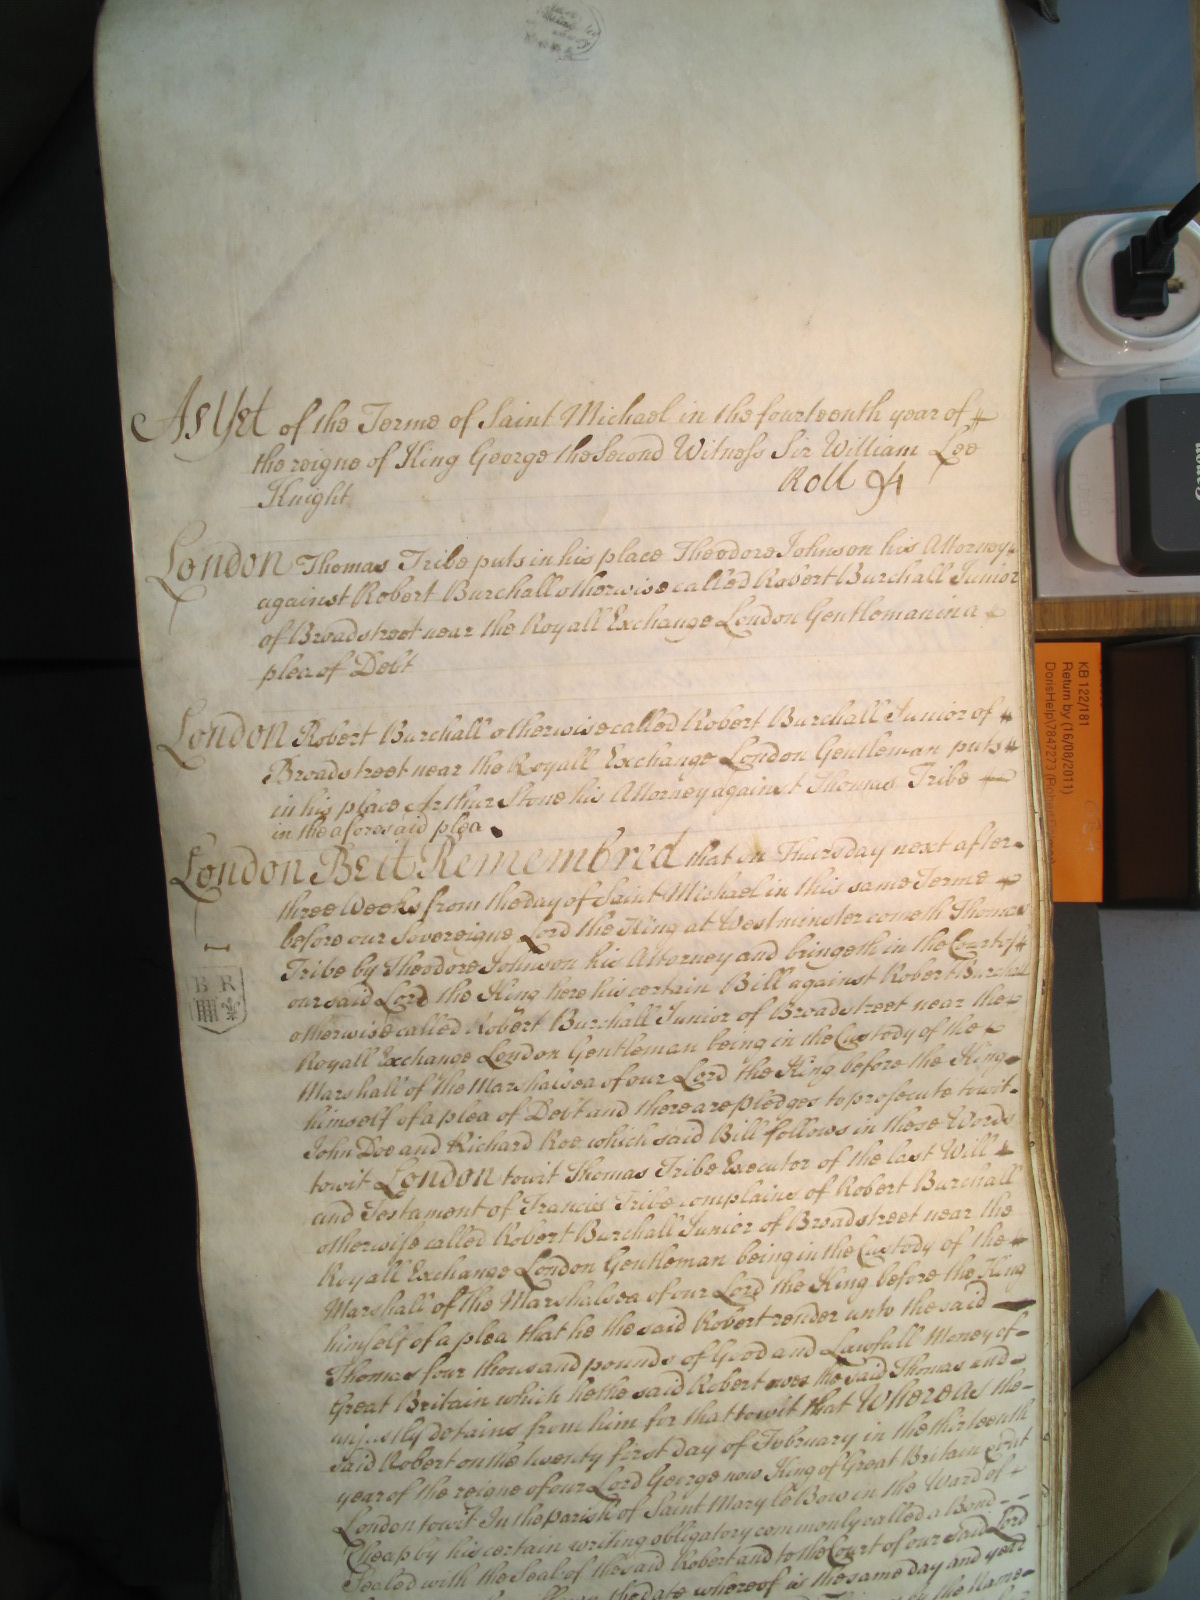 As Yet of the Terme of Saint Michael in the fourteenth year of
the reigne of King George the Second Witness Sir William Lee
Knight
Roll 94
London Thomas Tribe puts in his place Theodore Johnson his Attorney
against Robert Burchall otherwise called Robert Burchall Junior
of Broadstreet near the Royall Exchange London Gentleman in a
plea of Debt
London Robert Burchall otherwise called Robert Burchall Junior of
Broadstreet near the Royall Exchange London Gentleman puts
in his place Arthur Stone his Attorney against Thomas Tribe
in the aforesaid plea
London Be it Remembred that on Thursday next after
three Weeks from the day of Saint Michael in this same Terme
before our Sovereigne Lord the King at Westminster cometh Thomas
Tribe by Theodore Johnson his Attorney and bringeth in the Court of
our said Lord the King here his certain Bill against Robert Burchall
otherwise called Robert Burchall Junior of Broadstreet near the
Royall Exchange London Gentleman being in the Custody of the
Marshall of the Marshalsea of our Lord the King before the King
himself of a plea of Debt and there are pledges to prosecute towit
John Doe and Richard Roe which said Bill follows in these Words
towit London towit Thomas Tribe Executor of the last Will
and Testament of Francis Tribe complains of Robert Burchall
otherwise called Robert Burchall Junior of Broadstreet near the
Royall Exchange London Gentleman being in the Custody of the
Marshall of the Marshalsea of our Lord the King before the King
himself of a plea that he the said Robert render unto the said
Thomas four thousand pounds of Good and Lawfull Money of
Great Britain which he the said Robert owes the said Thomas and
unjustly detains from him for that towit that Whereas the
said Robert on the twenty first day of February in the thirteenth
year of the reigne of our Lord George now King of Great Britain &c at
London towit In the parish of Saint Mary le Bow in the Ward of
Cheap by his certain writing obligatory commonly called a Bond
Sealed with the Seal of the said Robert and to the Court of our said Lord
the date whereof is the same day and year
the Name
B R
KB 122/181
Return by (16/08/2011)
DorisHelp\7847273
Canon